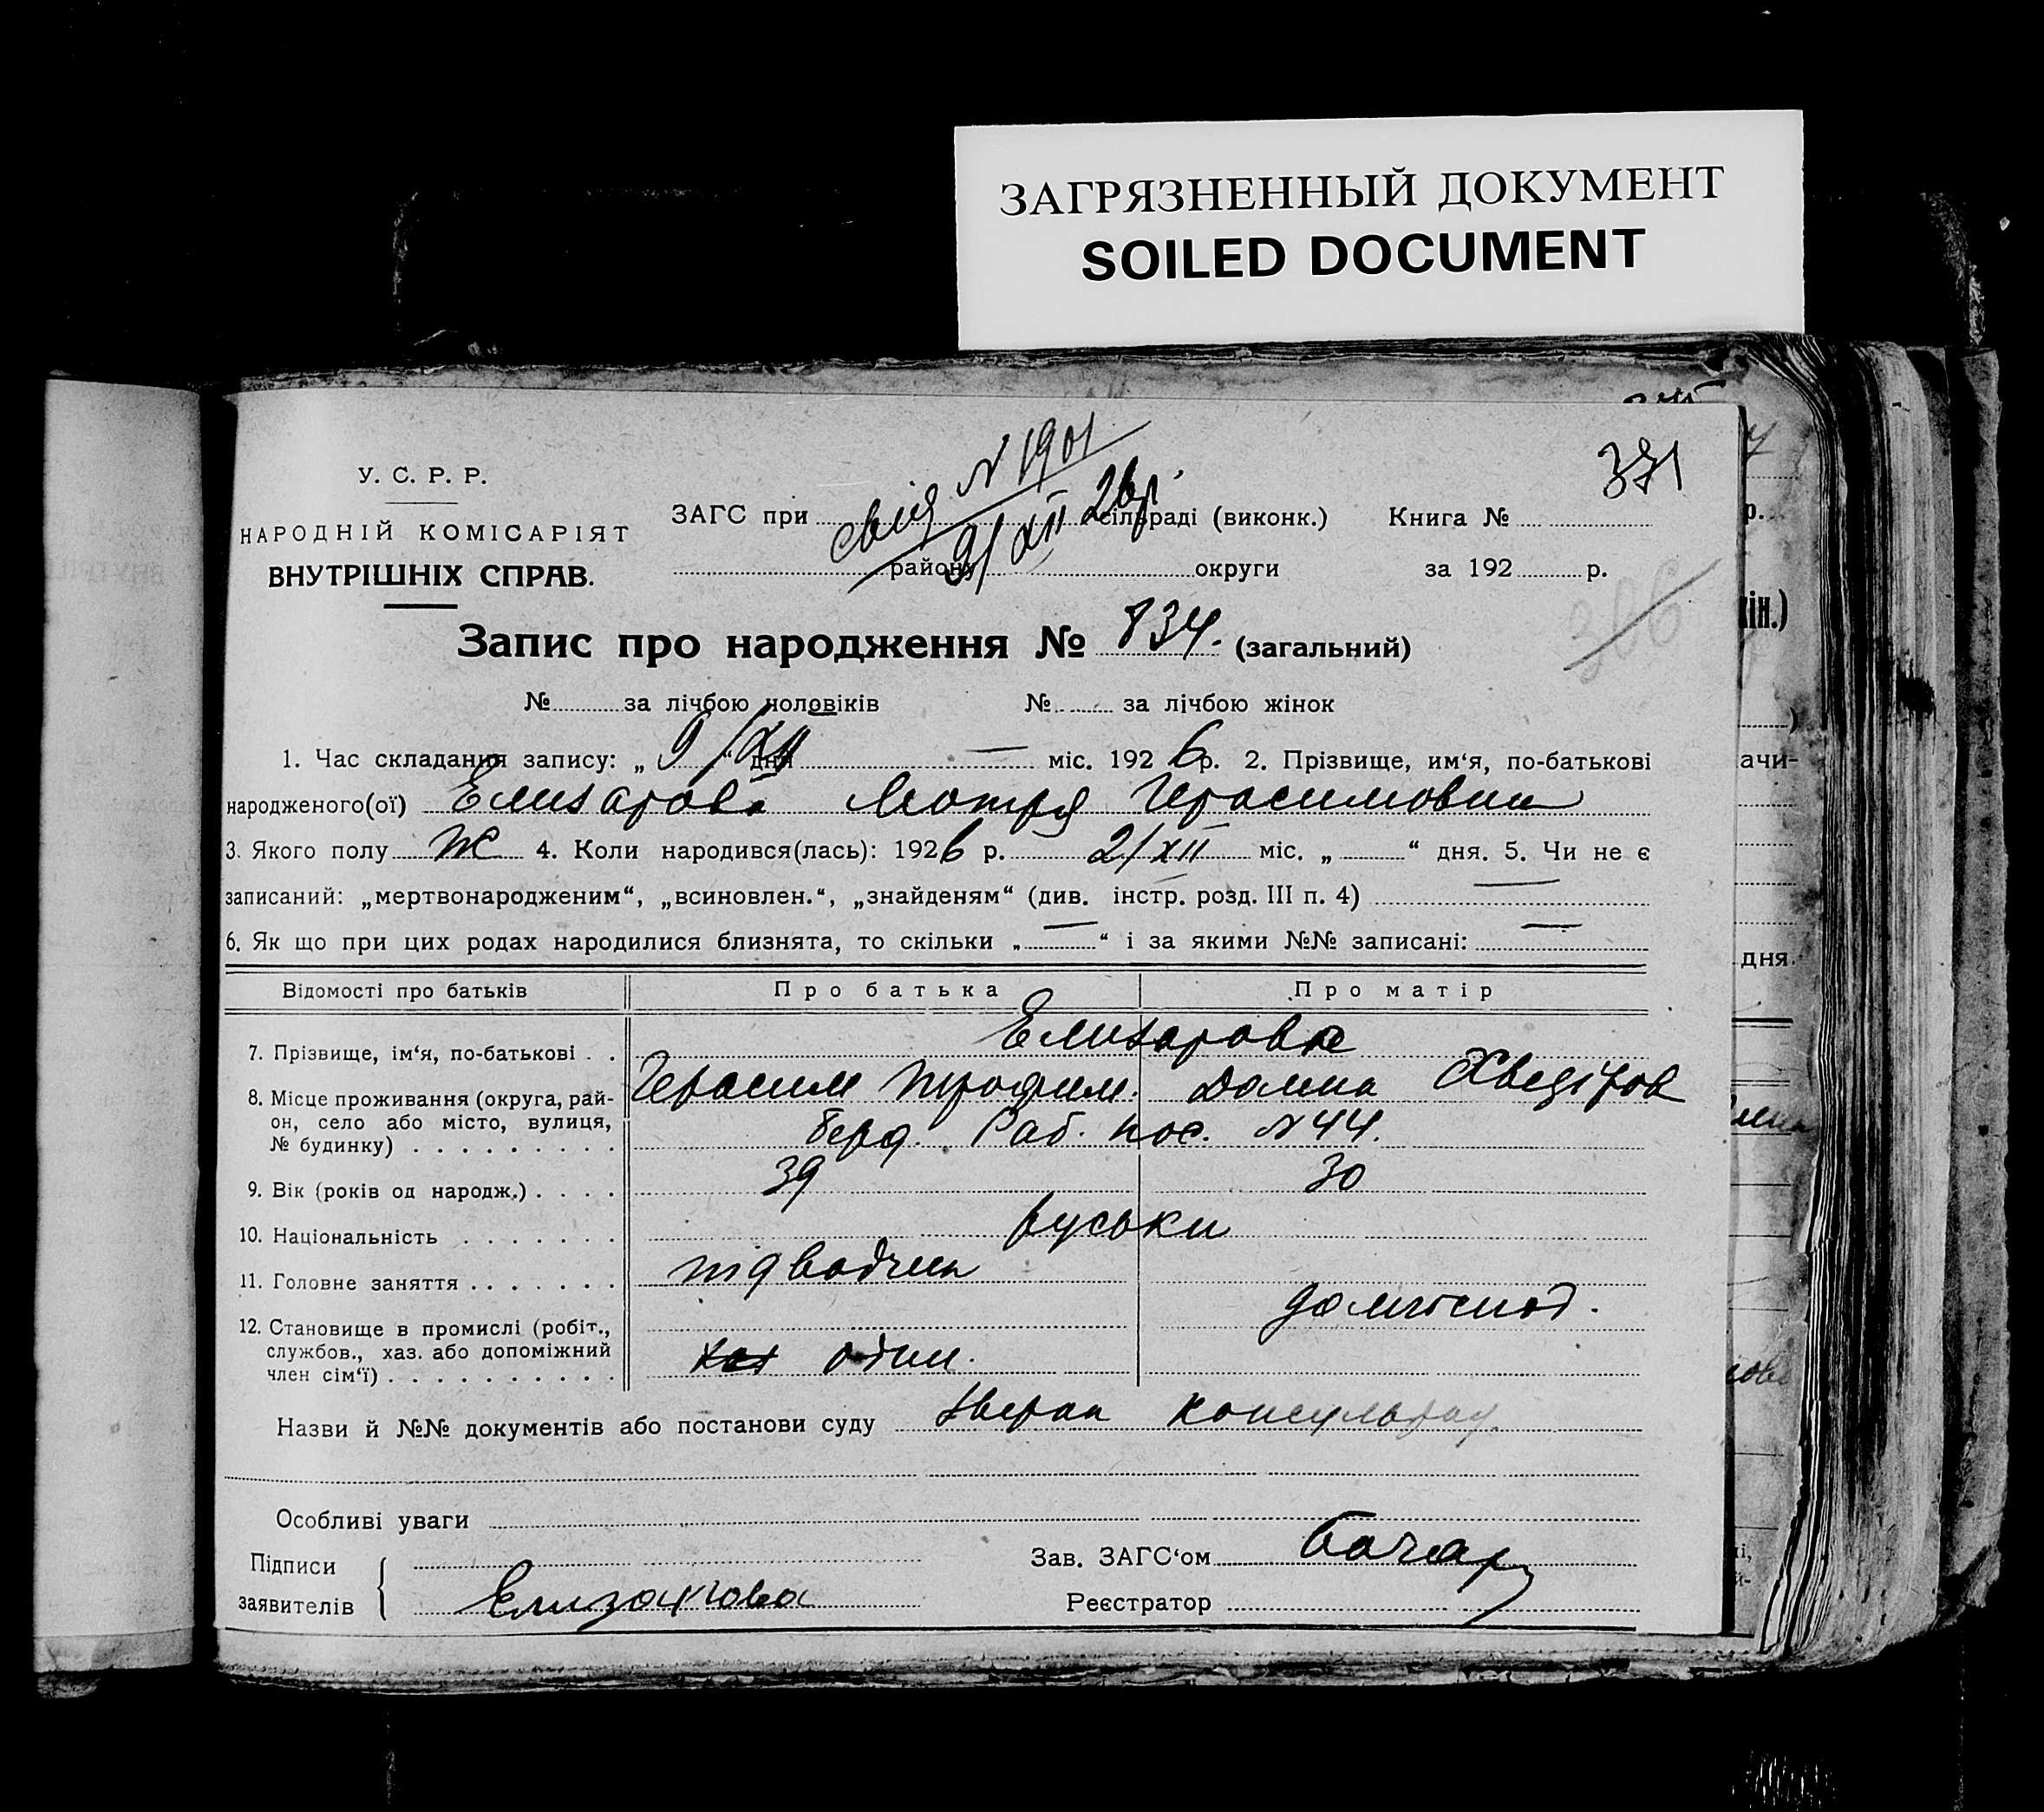 ЗАГРЯЗНЕННЫЙ ДОКУМЕНТ
SOILED DOCUMENT
371
У. С. Р. Р.
НАРОДНІЙ КОМІСАРІЯТ
ВНУТРІШНІХ СПРАВ.
свід N 1901
9/XII 26р.
ЗАГС при сільраді (виконк.) Книга №
району округи за 192 р.
366
Запис про народження № 834. (загальний)
№ за лічбою чоловіків № за лічбою жінок
1. Час складання запису: „ 9/XII “ дня міс. 1926 р. 2. Прізвище, им‘я, по-батькові
народженого(ої) Елизарова Мотря Герасимовна
3. Якого полу Ж 4. Коли народився(лась): 1926 р. 2/XII міс. „ “ дня. 5. Чи не є
записаний: „мертвонародженим“, „всиновлен.“, „знайденям“ (див. інстр. розд. III п. 4) —
6. Як що при цих родах народилися близнята, то скільки „ — “ і за якими №№ записані: —
Відомості про батьків Про батька Про матір
7. Прізвище, ім‘я, по-батькові . . Елизарове
Герасим Трофим. Домна Хведіров
8. Місце проживання (округа, рай-
он, село або місто, вулиця,
№ будинку) . . . . . . . . . Берд. Раб. пос. N 44.
9. Вік (років од народж.) . . . . 39 30
10. Національність . . . . . . . руськи
11. Головне заняття . . . . . . . підводчик домгоспод.
12. Становище в промислі (робіт.,
службов., хаз. або допоміжний
член сім‘ї) . . . . . . . . . . один.
Назви й №№ документів або постанови суду
Особливі уваги
Підписи
заявителів Елизарова
Зав. ЗАГС‘ом
Реєстратор